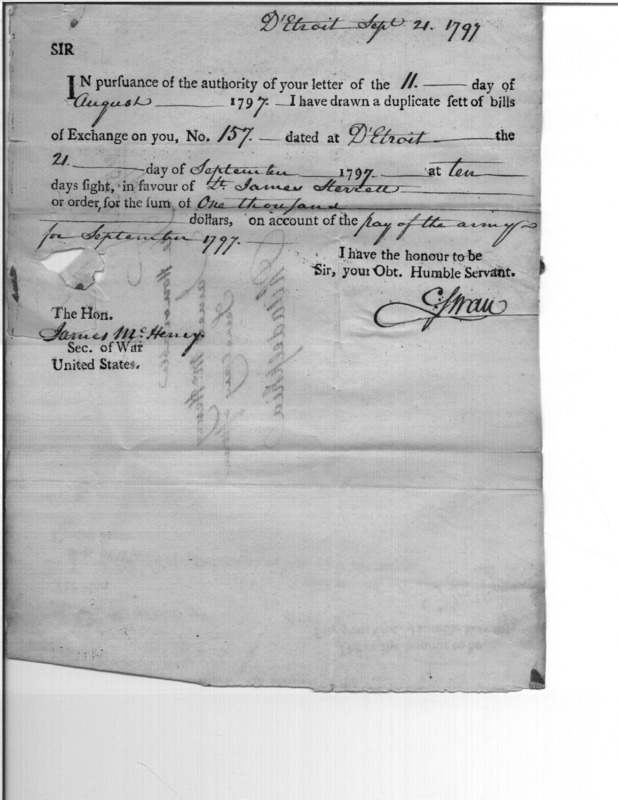 D'Etroit Sept 21. 1797
SIR
IN pursuance of the authority of your letter of the 11. day of
August 1797. I have drawn a duplicate sett of bills
of Exchange on you, No. 157. dated at D'Etroit the
21 day of September 1797 at ten
days sight, in favour of Lt James Sterrett
or order, for the sum of One thousand
dollars, on account of the pay of the army
for September 1797.
I have the honour to be
Sir, your Obt. Humble Servant.
C. Swan
The Hon.
James McHenry.
Sec. of War
United States.
Philadelphia